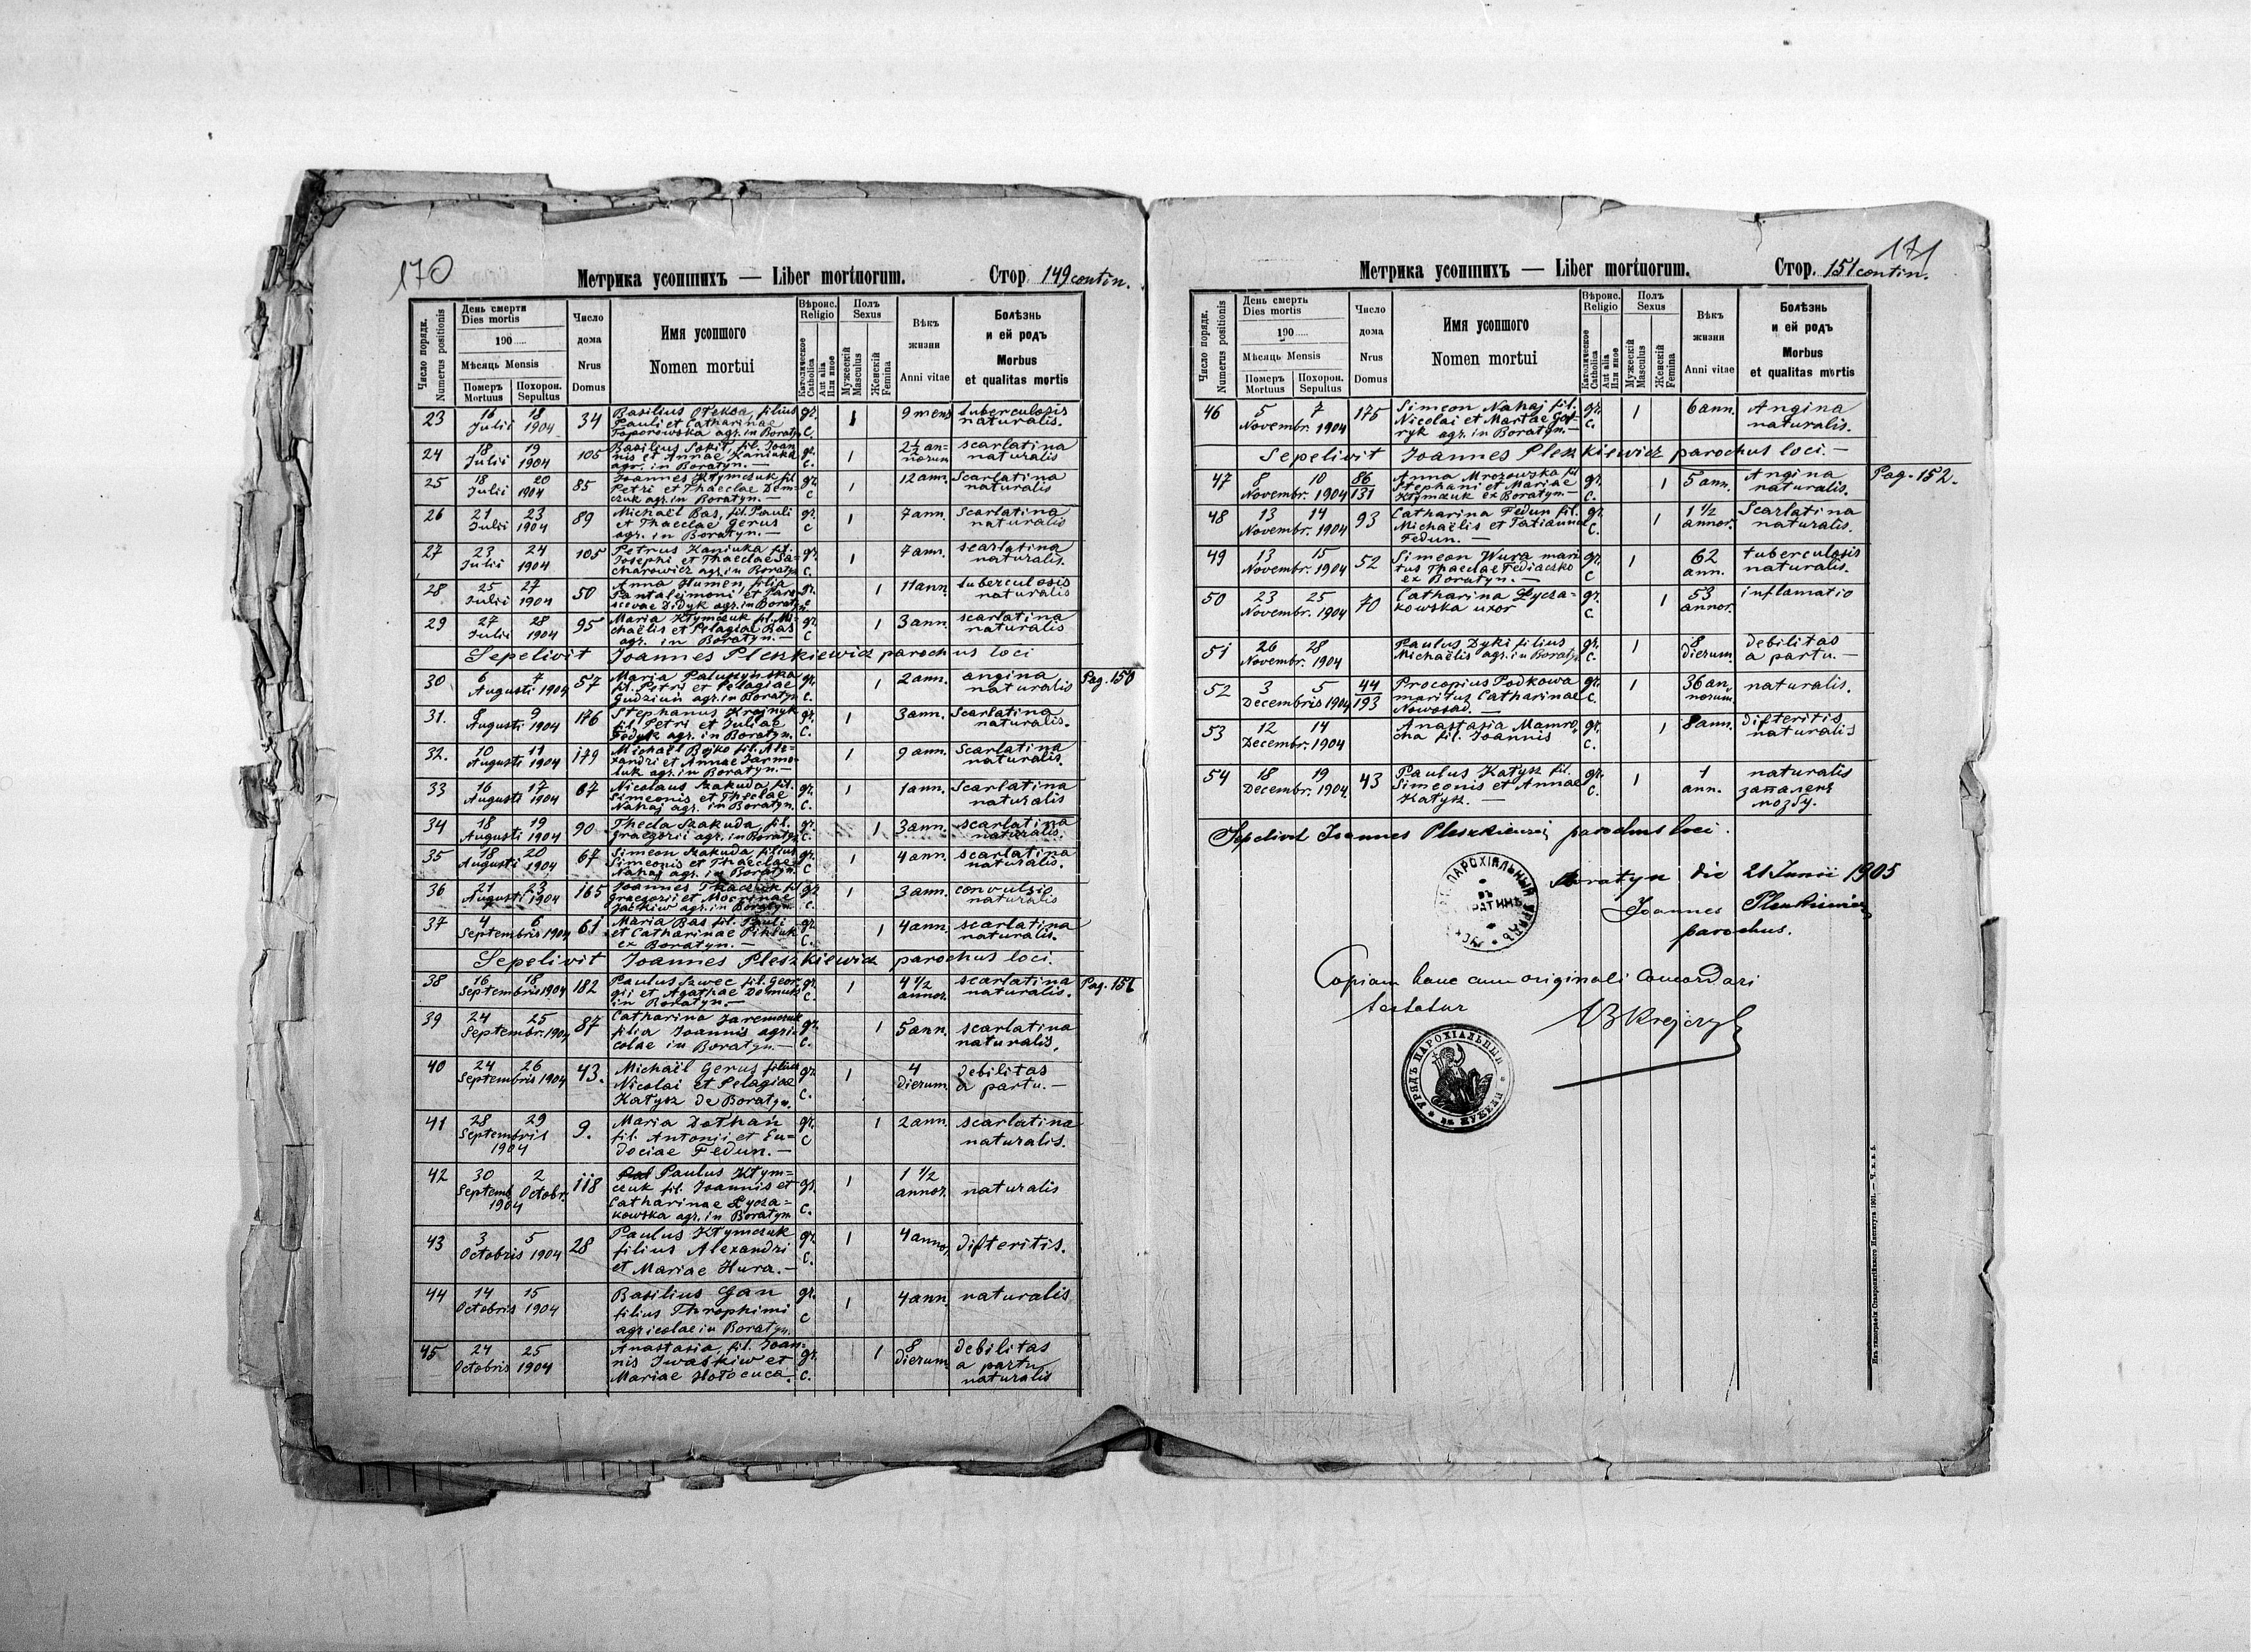 170
Метрика усопшихъ — Liber mortuorum.
Стор. 149 contin.
Число порядк.
Numerus positionis
День смерти
Dies mortis
190
Мѣсяць Mensis
Померъ
Mortuus
Похорон.
Sepultus
Число
дома
Nrus
Domus
Имя усопшого
Nomen mortui
Вѣроис.
Religio
Католическое
Catholica
Aut alia
Или иное
Полъ
Sexus
Мужескій
Masculus
Женскій
Femina
Вѣкъ
жизни
Anni vitae
Болѣзнь
и ей родъ
Morbus
et qualitas mortis
23 16 18 Julii 1904 34 Basilius Oteksa, filius gr. c. 1 9 mens tuberculosis
Pauli et Catharinae naturalis.
Toporowska agr. in Boratyn
24 18 19 Julii 1904 105 Basilius Sokit, fil. Joan gr. c. 1 2½ an= scarlatina
nis et Annae Kaniuka norum naturalis
agr. in Boratyn. —
25 18 20 Julii 1904 85 Joannes Kłymczuk fil gr. c 1 12 ann. Scarlatina
Petri et Thaeclae Dem= naturalis
czuk agr. in Boratyn. —
26 21 23 Julii 1904 89 Michaël Bas, fil. Pauli gr. c 1 7 ann. Scarlatina
et Thaeclae Gerus naturalis
agr. in Boratyn. —
27 23 24 Julii 1904 105 Petrus Kaniuka fil. gr. c. 1 7 ann. scarlatina
Josephi et Thaeclae Sa= naturalis
charowicz agr. in Boratyn
28 25 27 Julii 1904 50 Anna Humen, filia gr. c 1 11 ann. tuberculosis
Pantaleimoni et Paras naturalis
cevae Didyk agr. in Boratyn
29 27 28 Julii 1904 95 Maria Kłymczuk fil. Mi= gr. c 1 3 ann. scarlatina
chaëlis et Pelagiae Bas naturalis
agr. in Boratyn. —
Sepelivit Joannes Pleszkiewicz parochus loci
30 6 7 Augusti 1904 57 Maria Paluszynska gr. c. 1 2 ann. angina Pag. 150
fil. Petri et Pelagiae naturalis
Gudziun agr. in Boratyn
31. 8 9 Augusti 1904 176 Stephanus Krajnyk gr. c. 1 3 ann. Scarlatina
fil. Petri et Juliae naturalis.
Fedyk agr. in Boratyn.
32. 10 11 Augusti 1904 179 Michaël Bojko fil. Ale= 1 9 ann. Scarlatina
xandri et Annae Jarmo= naturalis.
luk agr. in Boratyn. —
33 16 17 Augusti 1904 67 Nicolaus Szakuda, fil. gr. c. 1 1 ann. Scarlatina
Simeonis et Theclae naturalis
Nahaj agr. in Boratyn.
34 18 19 Augusti 1904 90 Thecla Szakuda, fil. gr. c. 1 3 ann. scarlatina
Graegorii agr. in Boratyn naturalis.
35 18 20 Augusti 1904 67 Simeon Szakuda filius gr. c 1 4 ann. scarlatina
Simeonis et Thaeclae naturalis.
Nahaj agr. in Boratyn.
36 21 23 Augusti 1904 165 Joannes Tkaczuk fil gr. c. 1 3 ann. convulsio
Graegorii et Mocrinae naturalis
Jackiw agr. in Boratyn
37 4 6 Septembris 1904 61 Maria Bas fil. Pauli gr. c. 1 4 ann. scarlatina
et Catharinae Pihluk naturalis.
ex Boratyn. —
Sepelivit Joannes Pleszkiewicz parochus loci.
38 16 18 Septembris 1904 182 Paulus Szwec fil. Geor gr. c. 1 4 ½ scarlatina Pag. 151
gii et Agathae Demuk annor. naturalis.
in Boratyn. —
39 24 25 Septembr. 1904 87 Catharina Jaremczuk gr. c. 1 5 ann. scarlatina
filia Joannis agri= naturalis.
colae in Boratyn. —
40 24 26 Septembris 1904 43. Michaël Gerus filius gr. c. 1 4 debilitas
Nicolai et Pelagiae dierum a partu. —
Katysz de Boratyn.
41 28 29 Septembris 1904 9. Maria Dothań gr. c 1 2 ann. scarlatina
fil. Antonii et Eu= naturalis.
dociae Fedun. —
42 30 Septemb 2 Octobr. 1904 118 Paulus Kłym= gr. c. 1 1 ½
czuk fil. Joannis et annor. naturalis
Catharinae Łycza=
kowska agr. in Boratyn
43 3 5 Octobris 1904 28 Paulus Kłymczuk gr. c. 1 4 annor. difteritis.
filius Alexandri
et Mariae Hura. —
44 14 15 Octobris 1904 Basilius Gan gr. c 1 4 ann. naturalis
filius Throphimi
agricolae in Boratyn.
45 24 25 Octobris 1904 Anastasia, fil. Joan= gr. c. 1 8 debilitas
nis Iwaśkiw et dierum a partu
Mariae Hołocuca. naturalis
171
Метрика усопшихъ — Liber mortuorum.
Стор. 151 contin.
Число порядк.
Numerus positionis
День смерть
Dies mortis
190
Мѣсяць Mensis
Померъ
Mortuus
Похорон.
Sepultus
Число
дома
Nrus
Domus
Имя усопшого
Nomen mortui
Вѣроис.
Religio
Католическое
Catholica
Aut alia
Или иное
Полъ
Sexus
Мужескій
Masculus
Женскій
Femina
Вѣкъ
жизни
Anni vitae
Болѣзнь
и ей родъ
Morbus
et qualitas mortis
46 5 7 Novembr. 1904 175 Simeon Nahaj fil. gr. c. 1 6 ann. Angina
Nicolai et Martae Gaw= naturalis.
ryk agr. in Boratyn. —
Sepelivit Joannes Pleszkiewicz parochus loci. —
47 8 10 Novembr. 1904 86/131 Anna Mrozowska fil gr. c. 1 5 ann. Angina Pag. 152.
Stephani et Mariae naturalis.
Kłymczuk ex Boratyn —
48 13 14 Novembr. 1904 93 Catharina Fedun fil. gr. c. 1 1 ½ Scarlatina
Michaëlis et Tatiannae annor. naturalis.
Fedun. —
49 13 15 Novembr. 1904 52 Simeon Wura mari gr. c 1 62 tuberculosis
tus Thaeclae Fediaczko ann. naturalis.
ex Boratyn. —
50 23 25 Novembr. 1904 70 Catharina Łycza= gr. c. 1 53 inflamatio
kowska uxor annor.
51 26 28 Novembr. 1904 Paulus Dyki filius gr. c. 1 8 debilitas
Michaëlis agr. in Boratyn dierum. a partu. —
52 3 5 Decembris 1904 44/193 Procopius Podkowa gr. c. 1 36 an= naturalis.
maritus Catharinae norum
Nowosad. —
53 12 14 Decembr. 1904 Anastasia Mamro= gr. c. 1 8 ann. difteritis
cha fil. Joannis naturalis
54 18 19 Decembr. 1904 43 Paulus Katysz fil. gr. c. 1 1 naturalis
Simeonis et Annae ann. запаленє
Katysz. — мозгу.
Sepelivit Joannes Pleszkiewicz parochus loci.
Boratyn die 21 Junii 1905
Joannes Pleszkiewicz
parochus.
ПАРОХІАЛЬНЫЙ УРЯДЪ
ВЪ
Copiam hanc cum originali concordari
testatur
УРЯДЪ ПАРОХІАЛЬНЫЙ
Изъ типографіи Ставропигійского Института 1901. — Ч. х. в. 5.